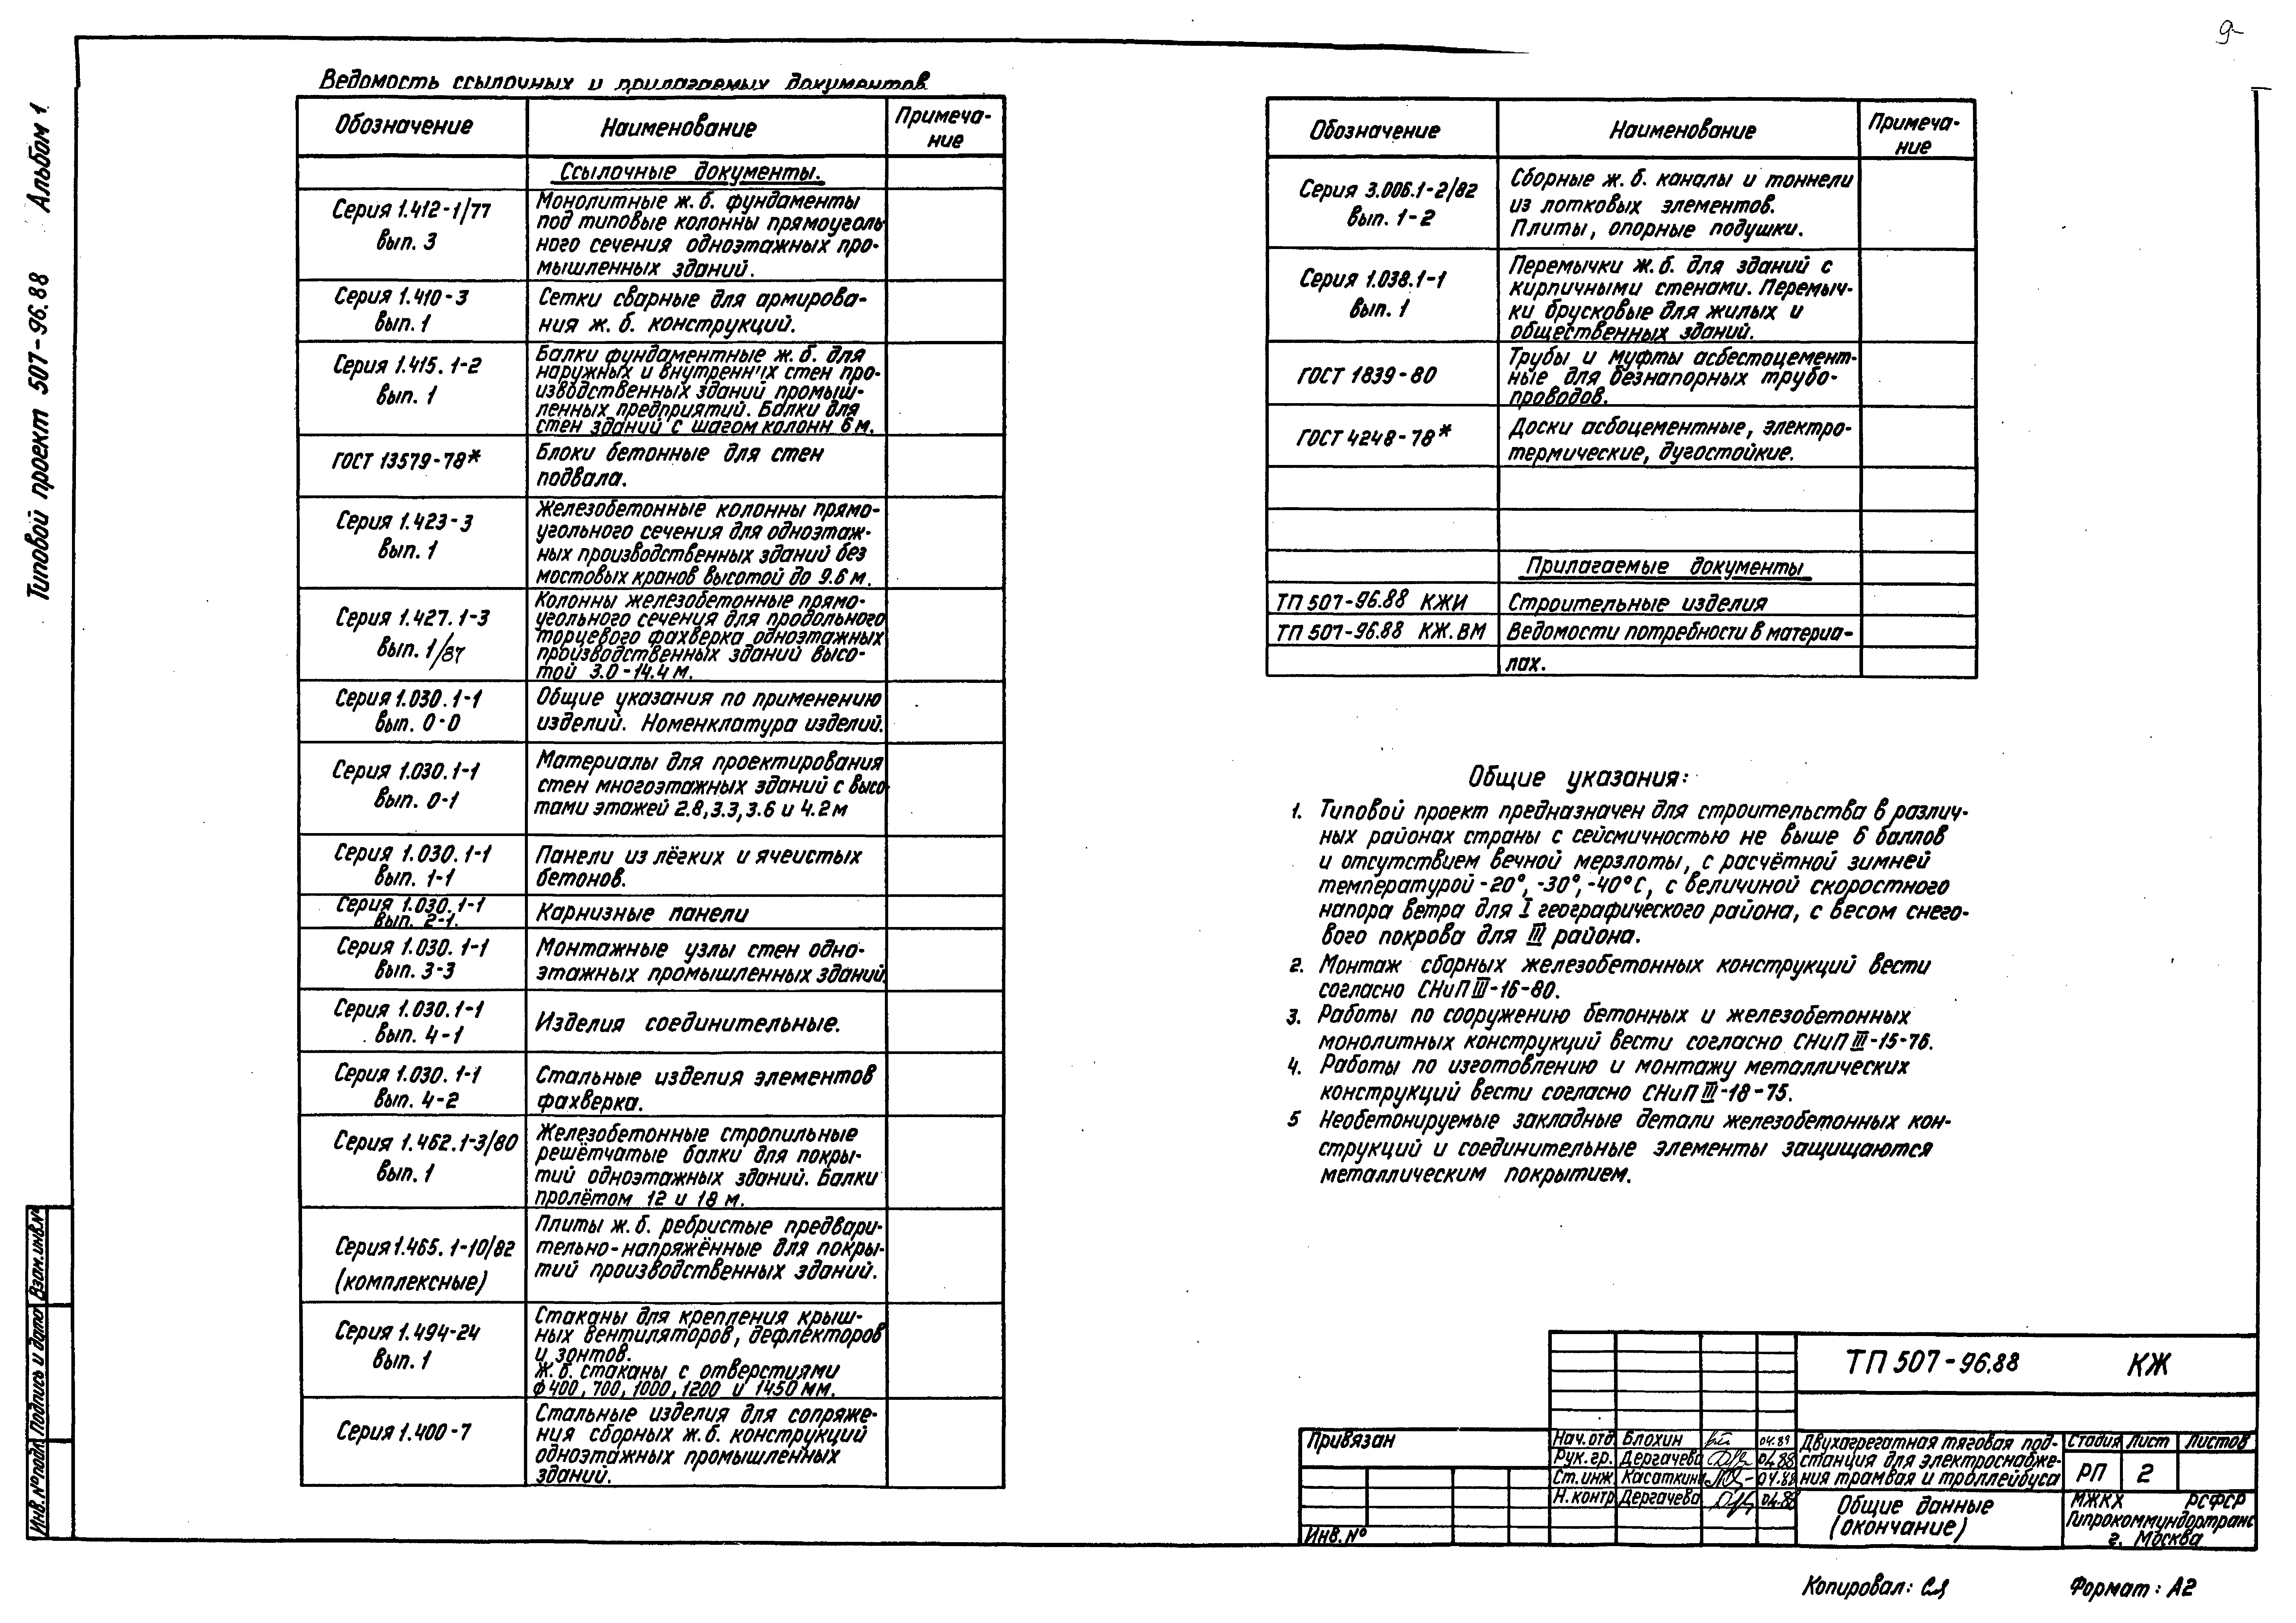 9-
Типовой проект 507-96.88 Альбом 1
Ведомость ссылочных и прилагаемых документов
Обозначение
Наименование
Примеча-
ние
Ссылочные документы.
Серия 1.412-1/77
вып. 3
Монолитные ж.б. фундаменты
под типовые колонны прямоуголь
ного сечения одноэтажных про-
мышленных зданий.
Серия 1.410-3
вып. 1
Сетки сварные для армирова-
ния ж. б. конструкций.
Серия 1.415.1-2
вып. 1
Балки фундаментные ж. б. для
наружных и внутренних стен про-
изводственных зданий промыш-
ленных предприятий. Балки для
стен зданий с шагом колонн 6 м.
ГОСТ 13579-78*
Блоки бетонные для стен
подвала.
Серия 1.423-3
вып. 1
Железобетонные колонны прямо-
угольного сечения для одноэтаж-
ных производственных зданий без
мостовых кранов высотой до 9.6 м.
Серия 1.427.1-3
вып. 1/87
Колонны железобетонные прямо-
угольного сечения для продольного
торцевого фахверка одноэтажных
производственных зданий высо-
той 3.0-14.4 м.
Серия 1.030.1-1
вып. 0-0
Общие указания по применению
изделий. Номенклатура изделий.
Серия 1.030.1-1
вып. 0-1
Материалы для проектирования
стен многоэтажных зданий с высо
тами этажей 2.8, 3.3, 3.6 и 4.2 м
Серия 1.030.1-1
вып. 1-1
Панели из лёгких и ячеистых
бетонов.
Серия 1.030.1-1
вып. 2-1.
Карнизные панели
Серия 1.030.1-1
вып. 3-3
Монтажные узлы стен одно-
этажных промышленных зданий.
Серия 1.030.1-1
вып. 4-1
Изделия соединительные.
Серия 1.030.1-1
вып. 4-2
Стальные изделия элементов
фахверка.
Серия 1.462.1-3/80
вып. 1
Железобетонные стропильные
решётчатые балки для покры-
тий одноэтажных зданий. Балки
пролётом 12 и 18 м.
Серия 1.465.1-10/82
(комплексные)
Плиты ж. б. ребристые предвари-
тельно-напряжённые для покры-
тий производственных зданий.
Серия 1.494-24
вып. 1
Стаканы для крепления крыш-
ных вентиляторов, дефлекторов
и зонтов.
Ж.б. стаканы с отверстиями
ϕ400, 700, 1000, 1200 и 1450 мм.
Серия 1.400-7
Стальные изделия для сопряже-
ния сборных ж.б. конструкций
одноэтажных промышленных
зданий.
Обозначение
Наименование
Примеча-
ние
Серия 3.006.1-2/82
вып. 1-2
Сборные ж. б. каналы и тоннели
из лотковых элементов.
Плиты, опорные подушки.
Серия 1.038.1-1
вып. 1
Перемычки ж.б. для зданий с
кирпичными стенами. Перемыч-
ки брусковые для жилых и
общественных зданий.
ГОСТ 1839-80
Трубы и муфты асбестоцемент-
ные для безнапорных трубо-
проводов.
ГОСТ 4248-78*
Доски асбоцементные, электро-
термические, дугостойкие.
Прилагаемые документы
ТП 507-96.88 КЖИ
Строительные изделия
ТП 507-96.88 КЖ.ВМ
Ведомости потребности в материа-
лах.
Общие указания:
1. Типовой проект предназначен для строительства в различ-
ных районах страны с сейсмичностью не выше 6 баллов
и отсутствием вечной мерзлоты, с расчётной зимней
температурой -20°, -30°, -40°С, с величиной скоростного
напора ветра для I географического района, с весом снего-
вого покрова для III района.
2. Монтаж сборных железобетонных конструкций вести
согласно СНиП III-16-80.
3. Работы по сооружению бетонных и железобетонных
монолитных конструкций вести согласно СНиП III-15-76.
4. Работы по изготовлению и монтажу металлических
конструкций вести согласно СНиП III-18-75.
5 Необетонируемые закладные детали железобетонных кон-
струкций и соединительные элементы защищаются
металлическим покрытием.
Инв.№ подл. Подпись и дата Взам.инв.№
ТП 507-96.88 КЖ
Привязан
Инв. №
Нач. отд. Блохин 04.89
Рук. гр. Дергачева 04.88
Ст. инж. Касаткина 04.88
Н.контр Дергачева 04.88
Двухагрегатная тяговая под-
станция для электроснабже-
ния трамвая и троллейбуса
Стадия Лист Листов
РП 2
Общие данные
(окончание)
МЖКХ РСФСР
Гипрокоммундортранс
г. Москва
Копировал:
Формат: А2